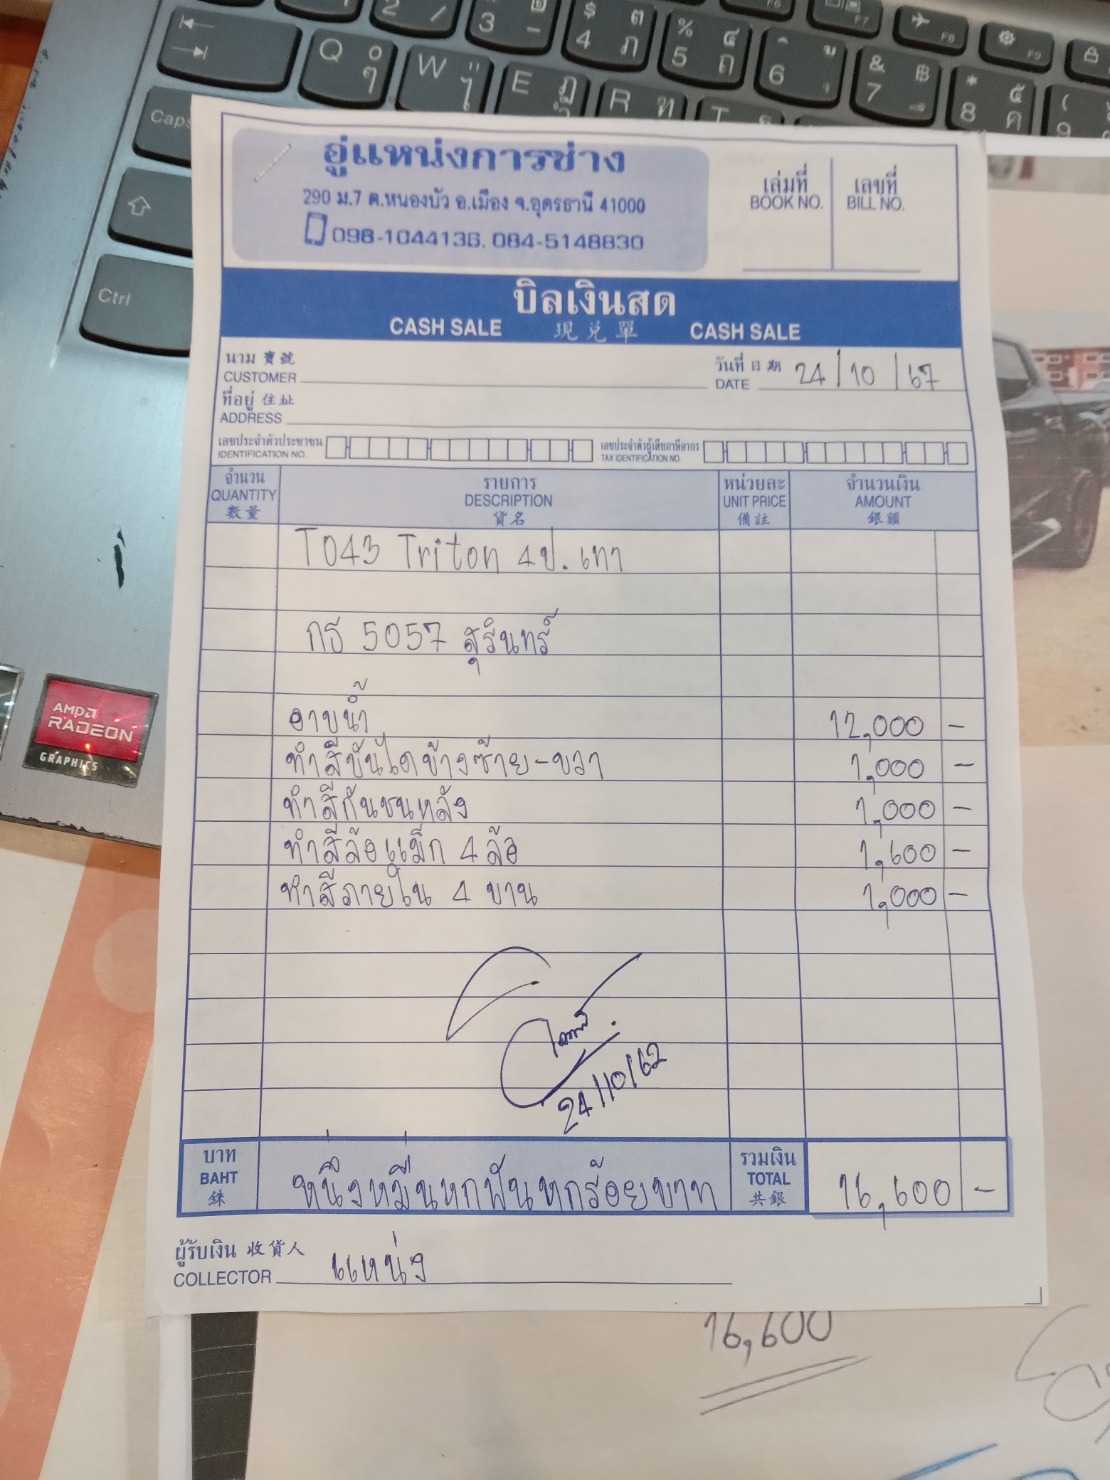 อู่แหน่งการช่าง
290 ม.7 ต.หนองบัว อ.เมือง จ.อุดรธานี 41000
098-1044136, 084-5148830
เล่มที่ เลขที่
BOOK NO. BILL NO.
บิลเงินสด
CASH SALE 現兑單 CASH SALE
นาม 寶號
CUSTOMER
วันที่ 日期
DATE 24/10/67
ที่อยู่ 住址
ADDRESS
เลขประจำตัวประชาชน
IDENTIFICATION NO.
เลขประจำตัวผู้เสียภาษีอากร
TAX IDENTIFICATION NO.
จำนวน รายการ หน่วยละ จำนวนเงิน
QUANTITY DESCRIPTION UNIT PRICE AMOUNT
數量 貨名 備註 銀額
T043 Triton 4ป. เทา
กธ 5057 สุรินทร์
อาบน้ำ 12,000 -
ทำสีบันไดข้างซ้าย-ขวา 1,000 -
ทำสีกันชนหลัง 1,000 -
ทำสีล้อแม็ก 4 ล้อ 1,600 -
ทำสีภายใน 4 บาน 1,000 -
24/10/62
บาท
BAHT
銖
หนึ่งหมื่นหกพันหกร้อยบาท
รวมเงิน
TOTAL
共銀
16,600 -
ผู้รับเงิน 收貨人
COLLECTOR แหน่ง
16,600
AMD
RADEON
GRAPHICS
Caps
Ctrl
Q
W
E
R
T